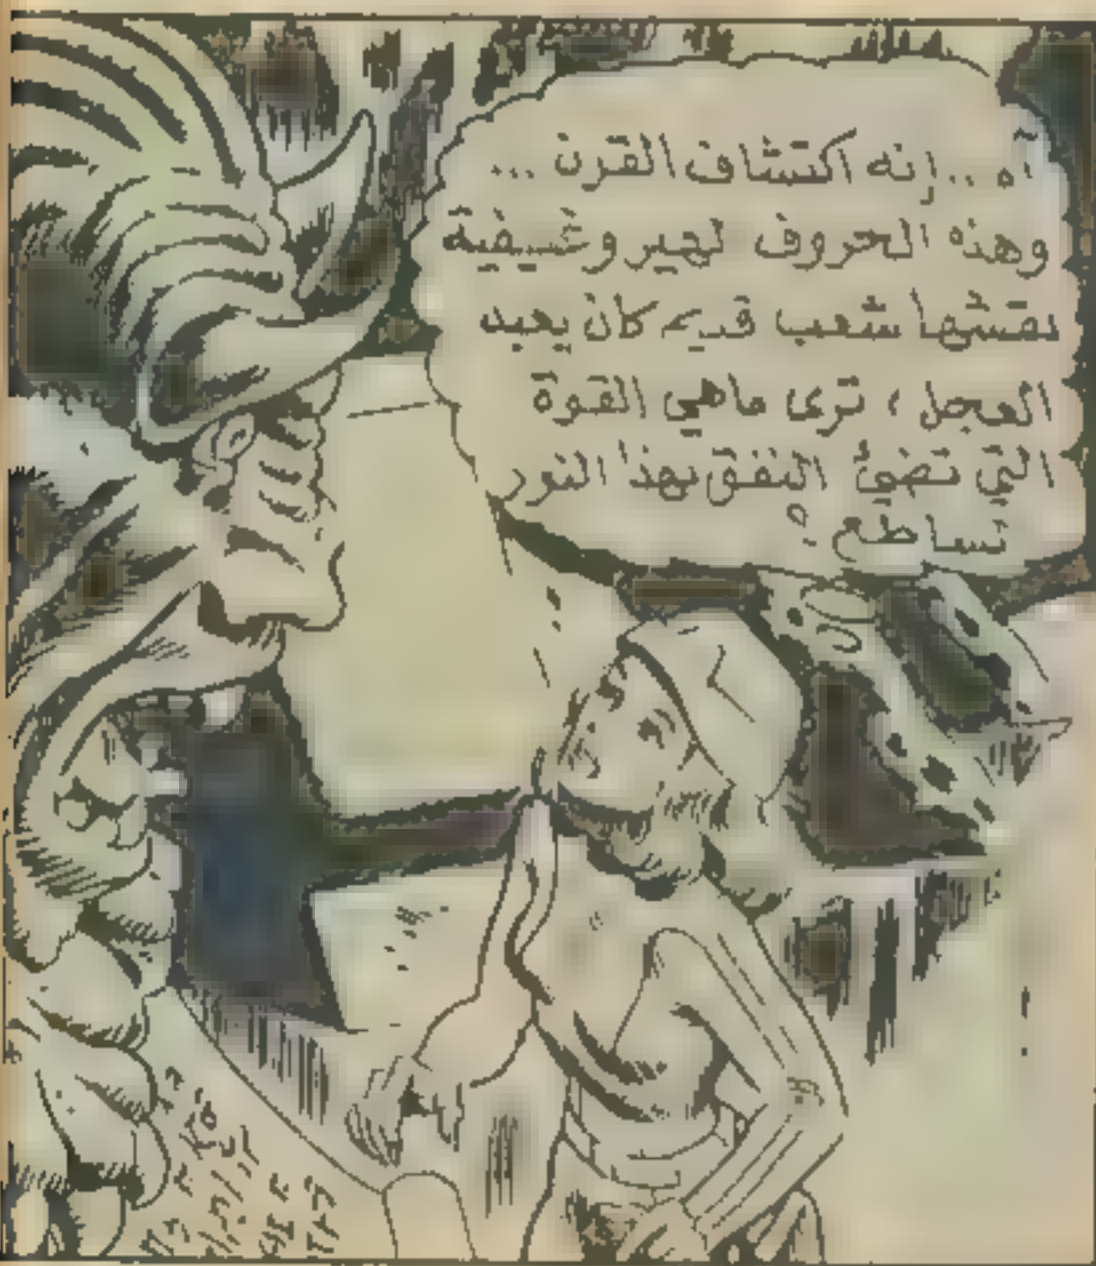 آه .. إنه اكتشاف القرن ...
وهذه الحروف لهيروغليفية
نقشها شعب قديم كان يعبد
العجل ، ترى ماهي القوة
التي تضيئ النفق بهذا النور
تساطع ؟